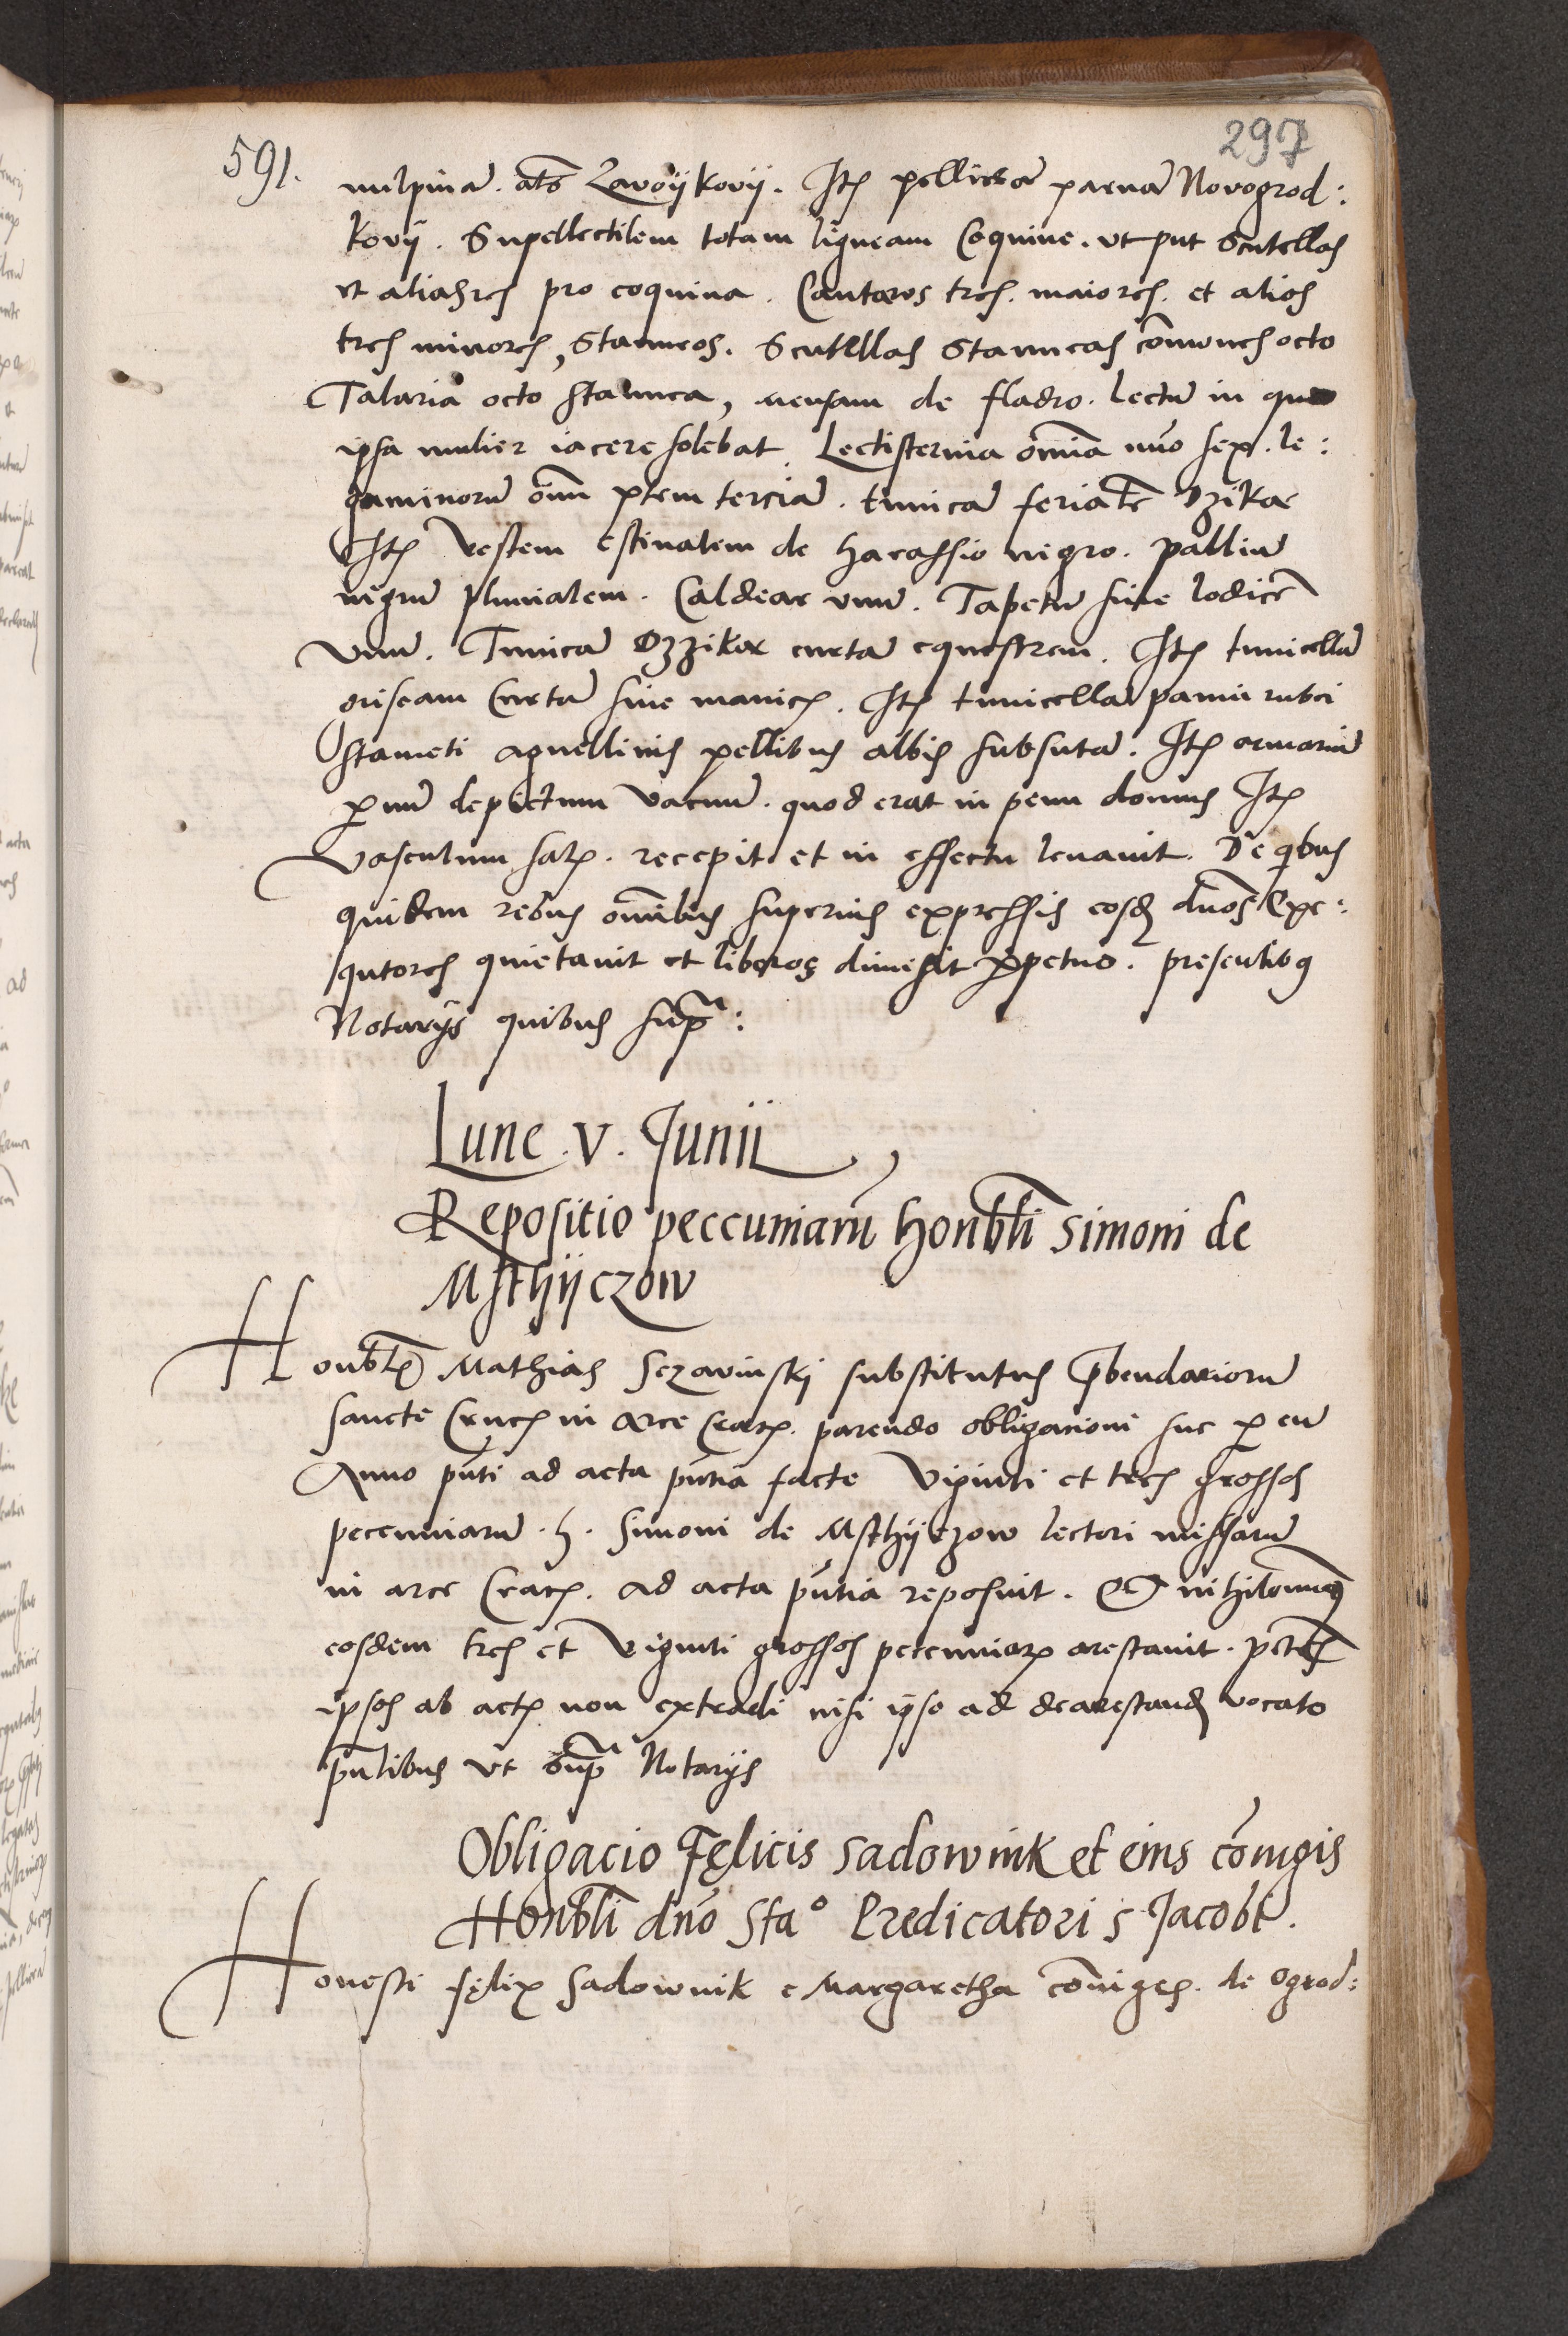 591.
297
vulpinā. als Zavoijkovij. Itē pelliceā paruā Novogrod:
kovij. Supellectilem totam ligneam Coquine. vt put Scutellas
et alias res pro coquina. Cantaros tres. maiores. et alios
tres minores, Stanneos. Scutellas Stanneas cōmunes octo
Talaria octo stannea, mensam de fladro. Lectū in quo
ipsa mulier iacere solebat. Lectisternia omnia nūo sex. le:
gaminorū omū ptem terciā. tunicā feriatē Dzikae
Itē Vestem estivalem de harassio nigro. palliū
nigrū pluvialem. Caldear vnū. Tapetū sive lodicē
Vnū. Tunicā curtā equestrem. Itē tunicellā
griseam Curtā sine manicis. Itē tunicellā panni rubei
Stameti agnellinis pellibus albis subsutā. Itē armariū
pnū depictum vacuū. quod erat in penu domus Itē
Vasculum salis. recepit et in effectu levavit. De qbus
quidem rebus omnibus superius expressis eosdē dnos Exe:
qutores quietavit et liberos dimisit ppetuo. presentibq
Notarijs quibus supra:
Lune . V . Junii
Repositio peccuniarū honbli Simoni de
Msthijczow
Honblis Mathias Sczavinskij substitutus pbendariorū
sancte Crucis in Arce Crac. parendo obligationi sue p eū
Anno pnti ad acta pntia facte Viginti et tres grossos
pecuniarū. h. Simoni de Msthijczow lectori missarū
in arce Crac. ad acta pntia reposuit. Et nihilominq
eosdem tres et Viginti grossos pecuniarū arestavit. petēs
ipsos ab actis non extradi nisi ipso ad dearestandū vocato
pntibus vt supra Notarijs
Obligacio Fęlicis Sadownik et eius cōiugis
Honbli dno Sta° Predicatori S Jacobi.
Honesti fęlix Sadownik e Margaretha cōiuges. de Ogrod: